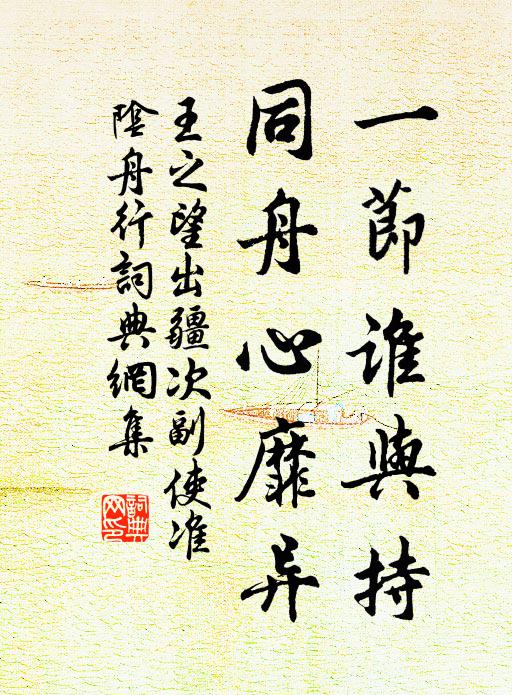 一節誰與持
同舟心靡异
王之望出疆次副使准
陰舟行詞典網集
詞典網印